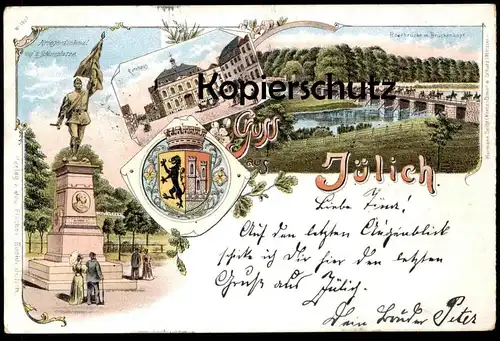 Kriegerdenkmal
a. d. Schlossplatze.
Kurhaus
Roerbrücke m. Brückenkopf.
Kopierschutz
Gruss
aus
Jülich.
Liebe Fina!
Auf den letzten Augenblick
schicke ich Dir hier den letzten
Gruß aus Jülich.
Dein Bruder Peter